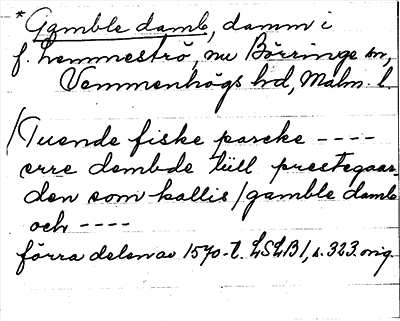 *Gamble damb, damm i
f. Lemmeströ, nu Börringe sn,
Vemmenhögs hd, Malm. l.
/Tuende fiske parcke ----
erre dembde till prestegaar-
den som kallis/gamble damb
och ----
förra delen av 1570-t. LSLB1, s. 323. orig.